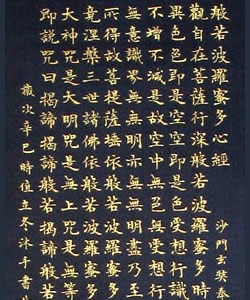 般若波羅蜜多心經
沙門玄奘奉
觀自在菩薩行深般若波羅蜜多時
異色色即是空空即是色受想行識
不增不減是故空中無色無受想行
無意識界無無明亦無無明盡乃至
所得故菩提薩埵依般若波羅蜜多
竟涅槃三世諸佛依般若波羅蜜多
大神咒是大明咒是無上咒是無等
即說咒曰揭諦揭諦般若揭諦般若
歲次辛巳時值立冬沐手書